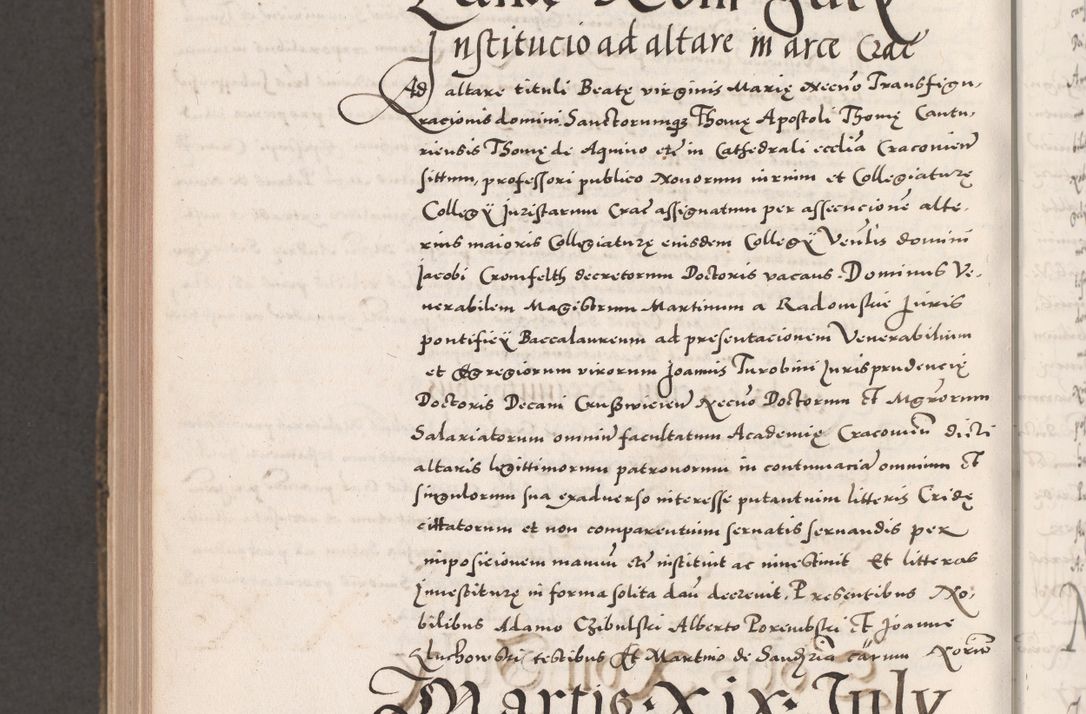 Lunę XVIII July
Institucio ad altare in arce Crac
Ad altare tituli Beatę virginis Marię Necno Transfigu,
racionis domini Sanctorumqz Thomę Apostoli Thomę Cantu,
riensis Thomę de Aquino etc in Cathedrali ecclia Cracovien
sittum, professori publico Novorum iurium et Collegiaturę
Collegÿ Juristarum Crac assignatum per assecucione alte,
rius maioris Collegiaturę eiusdem Collegÿ Venlis domini
Jacobi Cromfelth decretorum Doctoris vacans. Dominus Ve,
nerabilem Magistrum Martinum a Radomskie Juris
pontificÿ Baccalaureum ad presentacionem Venerabilium
et Egregiorum virorum Joannis Turobini Jurisprudencię
Doctoris Decani Crusswicien Necno Doctorum Et Mgrorum
Salariatorum omniu facultatum Academię Cracovien dicti
altaris legittimorum patronorum in contumacia omnium Et
singulorum sua exadverso interesse putantium litteris Cridę
cittatorum et non comparentium servatis servandis per
imposicionem manuu etc instituit ac investivit Et litteras
Investiturę in forma solita dau decrevit. Presentibus No,
bilibus Adamo Czibulski Alberto Porembski Et Joanne
Kluchowski testibus Et Martino de Sandziria carum Notario
Martis XIX July